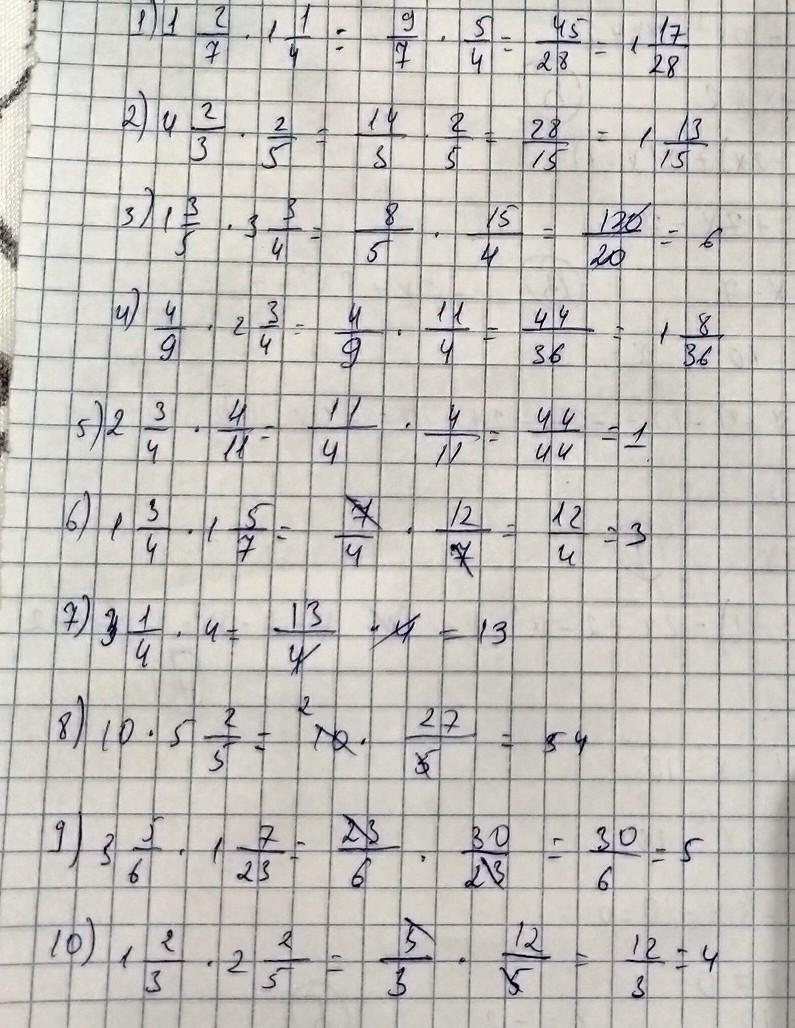 1) 1 2/7 · 1 1/4 = 9/7 · 5/4 = 45/28 = 1 17/28
2) 4 2/3 · 2/5 = 14/3 · 2/5 = 28/15 = 1 13/15
3) 1 3/5 · 3 3/4 = 8/5 · 15/4 = 120/20 = 6
4) 4/9 · 2 3/4 = 4/9 · 11/4 = 44/36 = 1 8/36
5) 2 3/4 · 4/11 = 11/4 · 4/11 = 44/44 = 1
6) 1 3/4 · 1 5/7 = 7/4 · 12/7 = 12/4 = 3
7) 3 1/4 · 4 = 13/4 · 4 = 13
8) 10 · 5 2/5 = 2 10 · 27/5 = 54
9) 3 5/6 · 1 7/23 = 23/6 · 30/23 = 30/6 = 5
10) 1 2/3 · 2 2/5 = 5/3 · 12/5 = 12/3 = 4